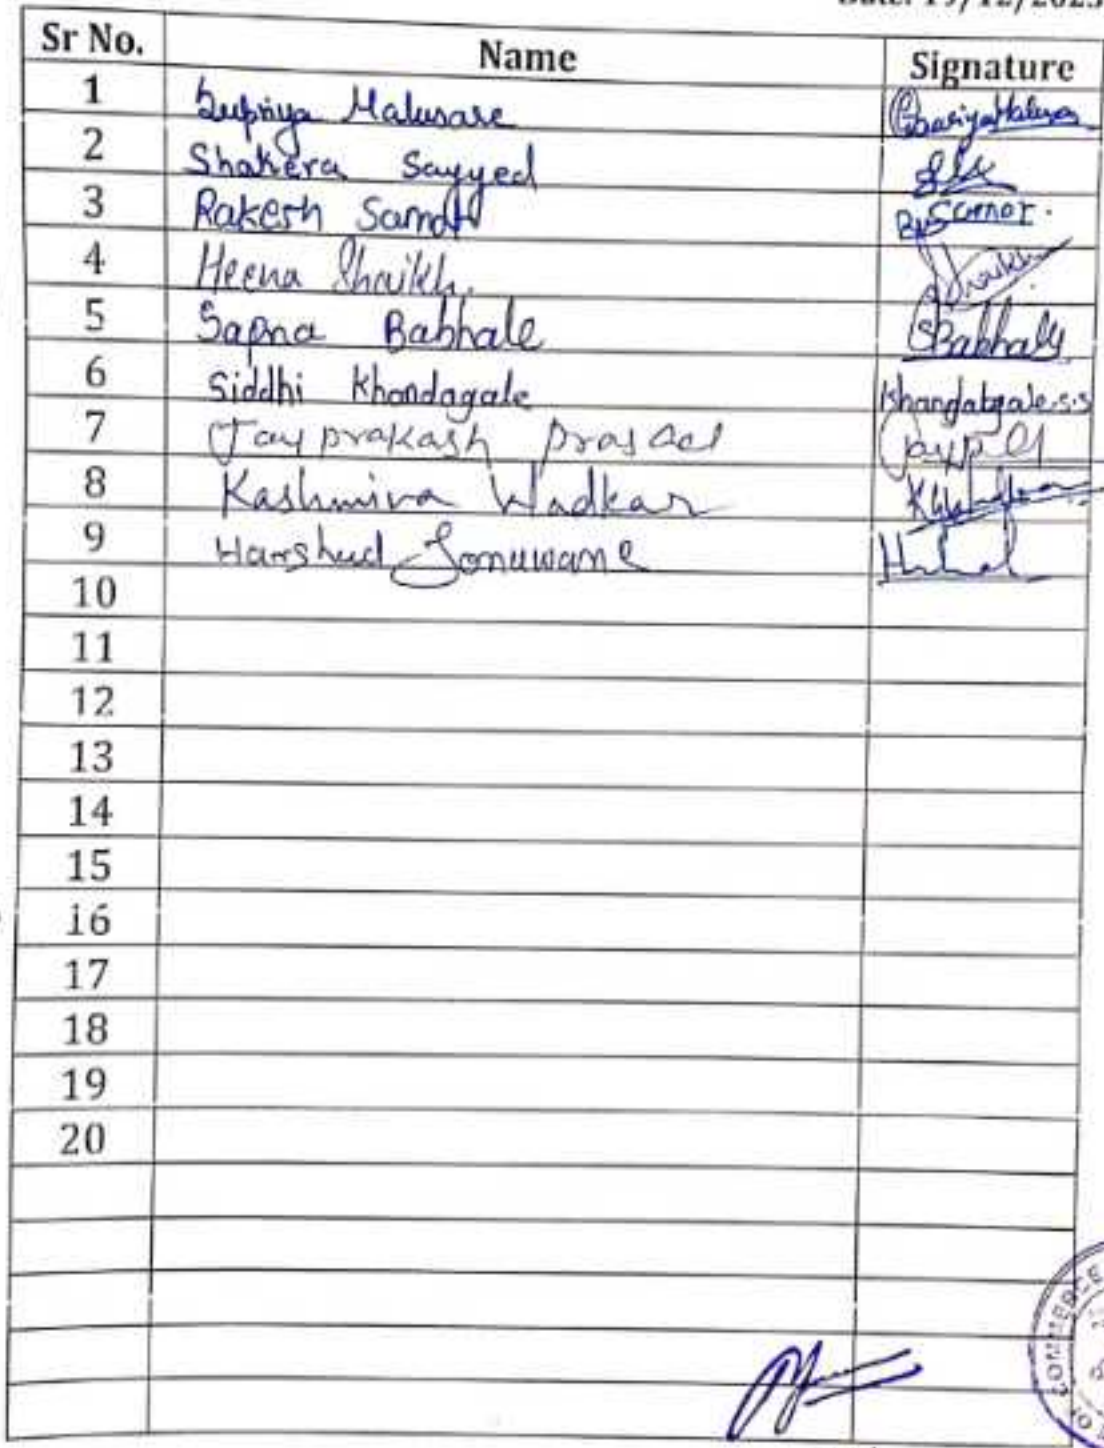 Date: 19/12/2023
Sr No. Name Signature
1 Supriya Malusare
2 Shakera Sayyed
3 Rakesh
4 Heena Shaikh. Shaikh
5 Sapna Babhale SBabhale
6 Siddhi Khandagale Khandagale.s.s
7 Jayprakash prasad
8 Kashmira Wadkar
9 Harshad Sonawane
10
11
12
13
14
15
16
17
18
19
20
OF COMMERCE